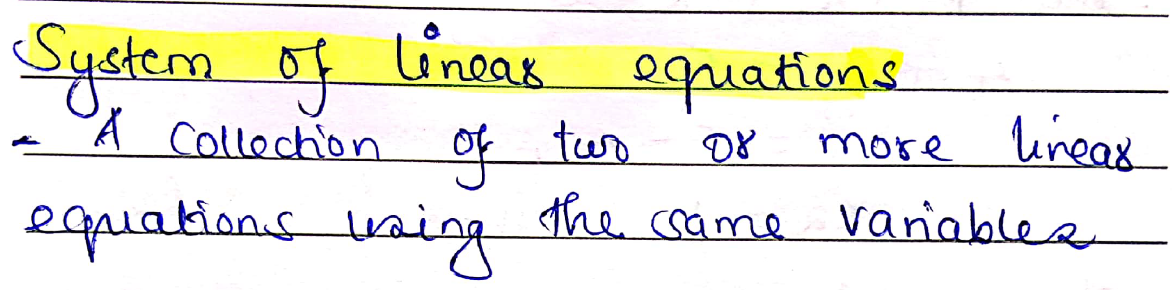 System of linear equations
- A collection of two or more linear
equations using the same variables